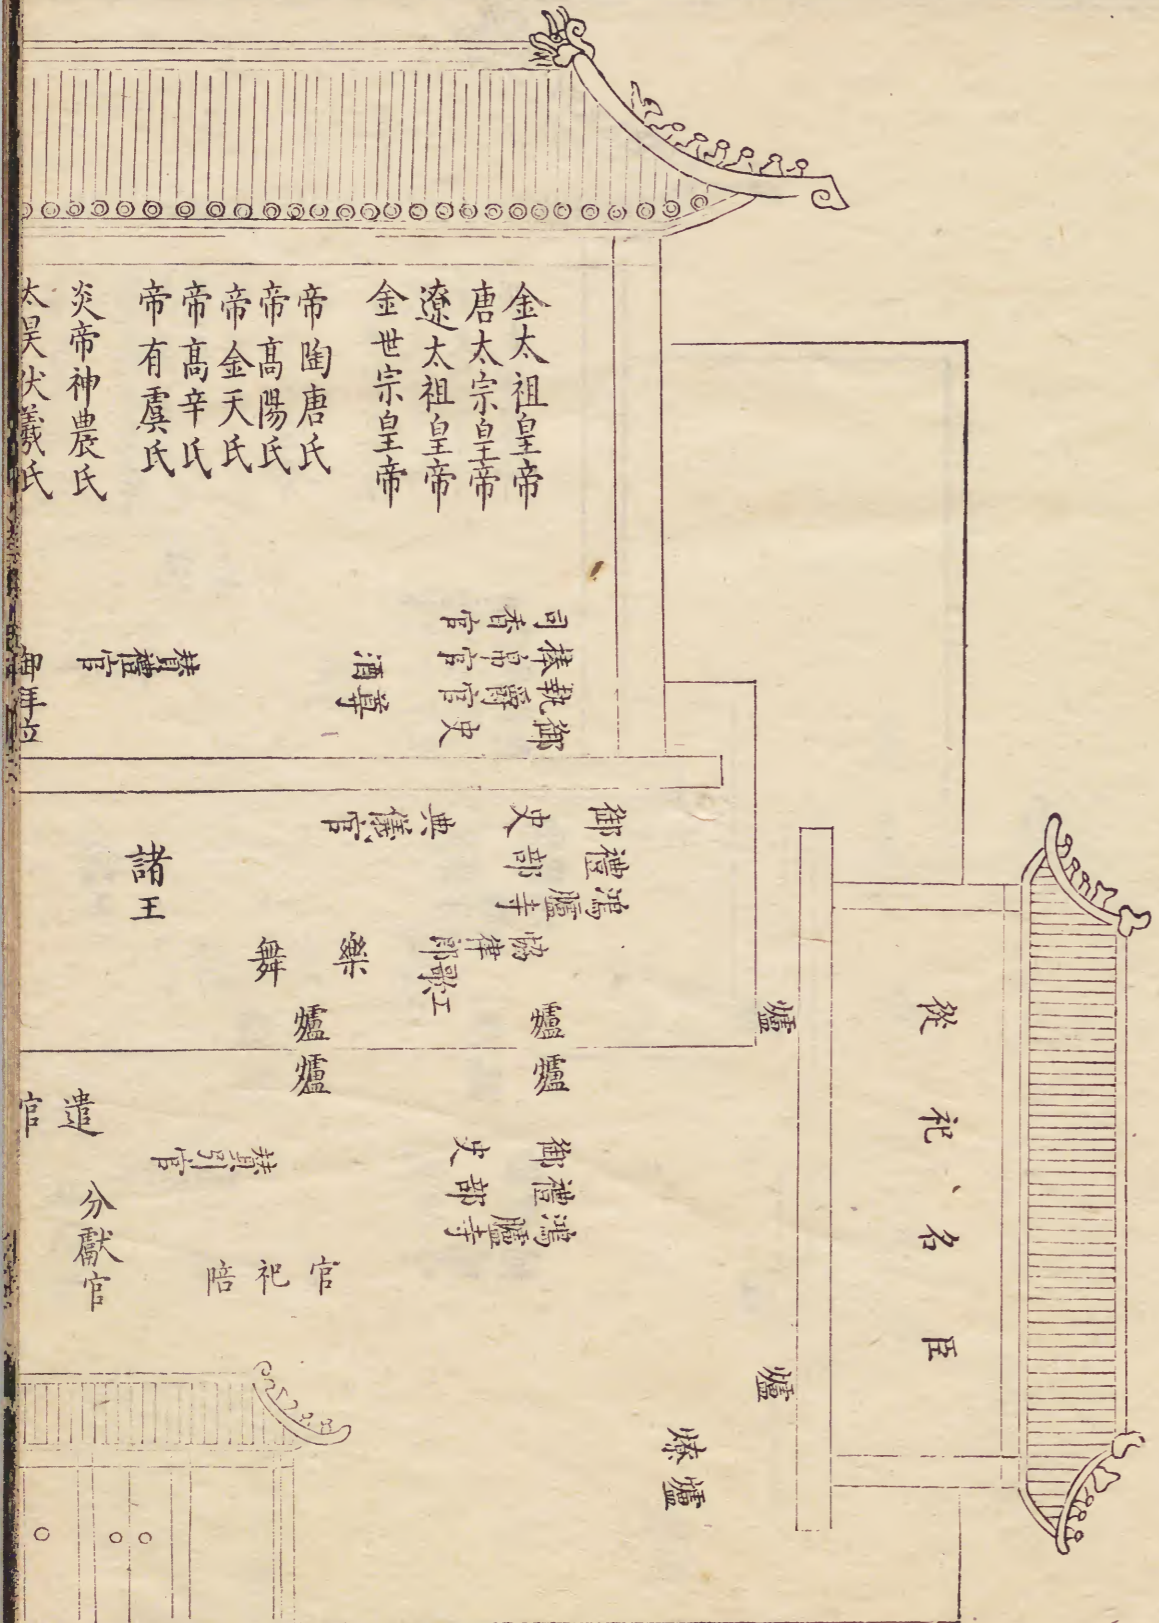 金太祖皇帝
唐太宗皇帝
遼太祖皇帝
金世宗皇帝
帝陶唐氏
帝高陽氏
帝金天氏
帝高辛氏
帝有虞氏
炎帝神農氏
太昊伏羲氏
司香官
捧帛官
執爵官
御史
酒尊
贊禮官
御拜位
御史
禮部
鴻臚寺
典儀官
協律郎
歌工
樂
舞
諸王
爐
爐
爐
爐
爐
從祀名臣
御史
禮部
鴻臚寺
贊引官
遣官
分獻官
陪祀官
爐
燎爐